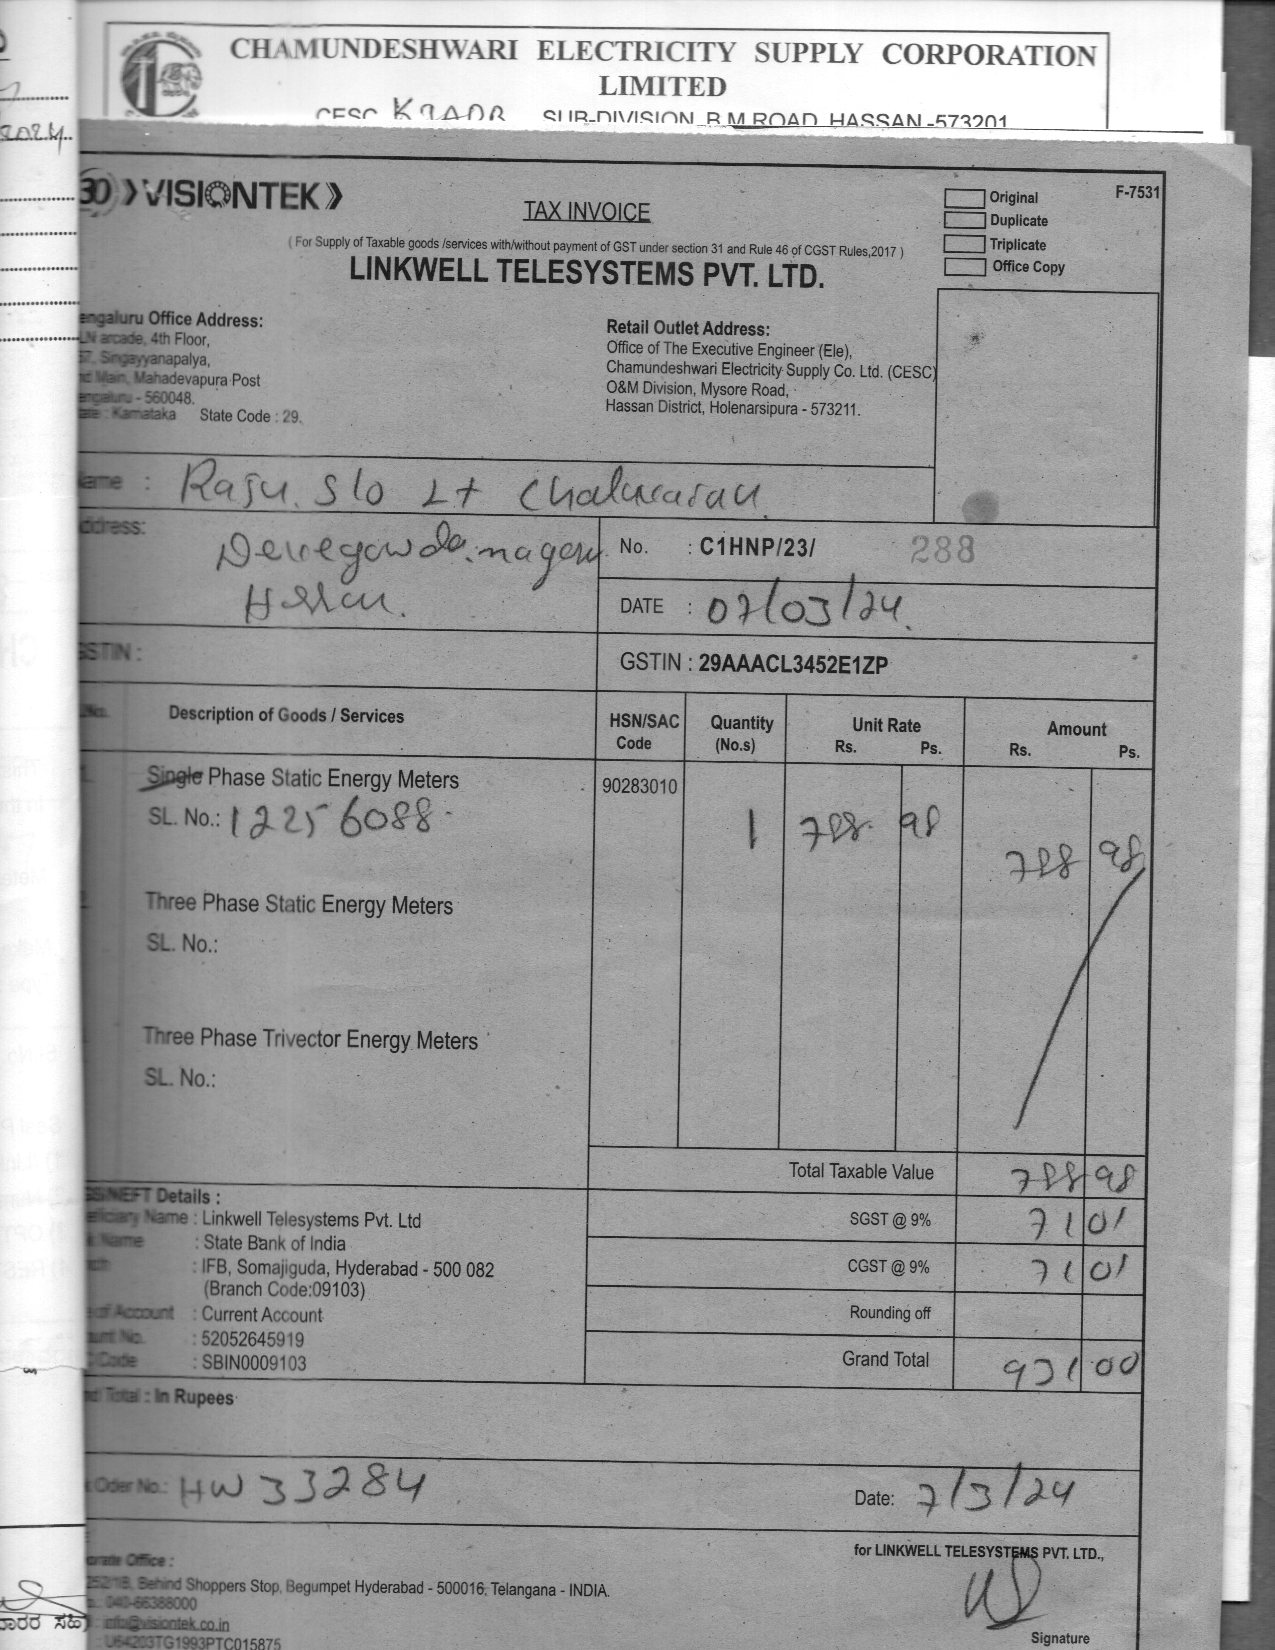 CHAMUNDESHWARI ELECTRICITY SUPPLY CORPORATION
LIMITED
CESC SUB-DIVISION B.M ROAD HASSAN -573201
2024
30 VISIONTEK
TAX INVOICE
Original
Duplicate
Triplicate
Office Copy
F-7531
( For Supply of Taxable goods /services with/without payment of GST under section 31 and Rule 46 of CGST Rules,2017 )
LINKWELL TELESYSTEMS PVT. LTD.
engaluru Office Address:
LN arcade, 4th Floor,
57, Singayyanapalya,
nd Main, Mahadevapura Post
engaluru - 560048.
ate : Karnataka State Code : 29.
Retail Outlet Address:
Office of The Executive Engineer (Ele),
Chamundeshwari Electricity Supply Co. Ltd. (CESC)
O&M Division, Mysore Road,
Hassan District, Holenarsipura - 573211.
ame : Raju. S/o Lt
ddress: Devegowda.nagara
Hassan.
No. : C1HNP/23/ 288
DATE : 07/03/24.
GSTIN :
GSTIN : 29AAACL3452E1ZP
No. Description of Goods / Services HSN/SAC Code Quantity (No.s) Unit Rate Rs. Ps. Amount Rs. Ps.
1. Single Phase Static Energy Meters 90283010
SL. No.: 12256088 1 788 98 788 98
Three Phase Static Energy Meters
SL. No.:
Three Phase Trivector Energy Meters
SL. No.:
Total Taxable Value 788 98
SGST @ 9% 71 01
CGST @ 9% 71 01
Rounding off
Grand Total 931 00
NEFT Details :
eficiary Name : Linkwell Telesystems Pvt. Ltd
Name : State Bank of India
: IFB, Somajiguda, Hyderabad - 500 082
(Branch Code:09103)
of Account : Current Account
unt No. : 52052645919
Code : SBIN0009103
Total : In Rupees
Oder No.: HW 33284
Date: 7/3/24
for LINKWELL TELESYSTEMS PVT. LTD.,
orate Office :
Behind Shoppers Stop, Begumpet Hyderabad - 500016, Telangana - INDIA.
: 040-66388000
: info@visiontek.co.in
: U64203TG1993PTC015875
Signature
ದಾರರ ಸಹಿ